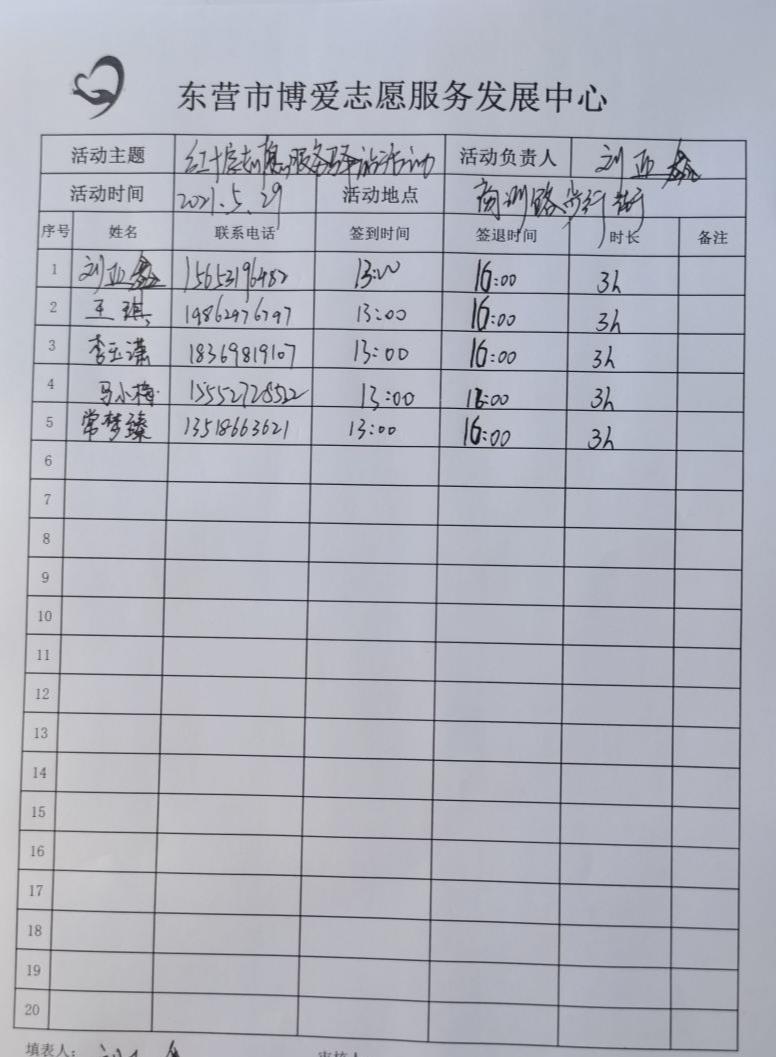 东营市博爱志愿服务发展中心
活动主题 红十字志愿服务驿站活动 活动负责人 刘亚
活动时间 2021.5.29 活动地点 商训路步行街
序号 姓名 联系电话 签到时间 签退时间 时长 备注
1 刘亚 15653196482 13:00 16:00 3h
2 王琪 19862976797 13:00 16:00 3h
3 李玉潇 18369819107 13:00 16:00 3h
4 马小梅 15552728522 13:00 16:00 3h
5 常梦臻 13518663621 13:00 16:00 3h
6
7
8
9
10
11
12
13
14
15
16
17
18
19
20
填表人： 刘亚 审核人